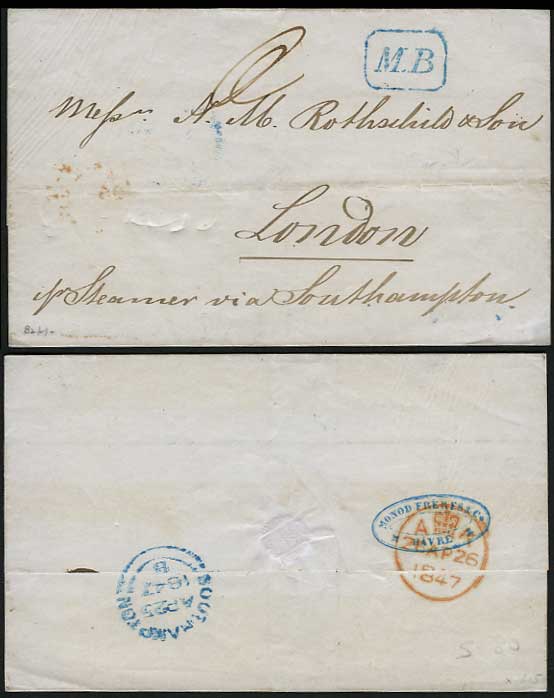 M.B
Messrs N. M. Rothschild & Son
London
pr Steamer via Southampton.
MONOD FRERES & Co
HAVRE
A
AP 26
1847
SOUTHAMPTON
AP 25
1847
B